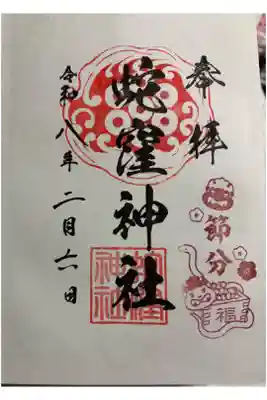 奉拝
蛇窪神社
令和八年
二月六日
節分
福
蛇窪
神社